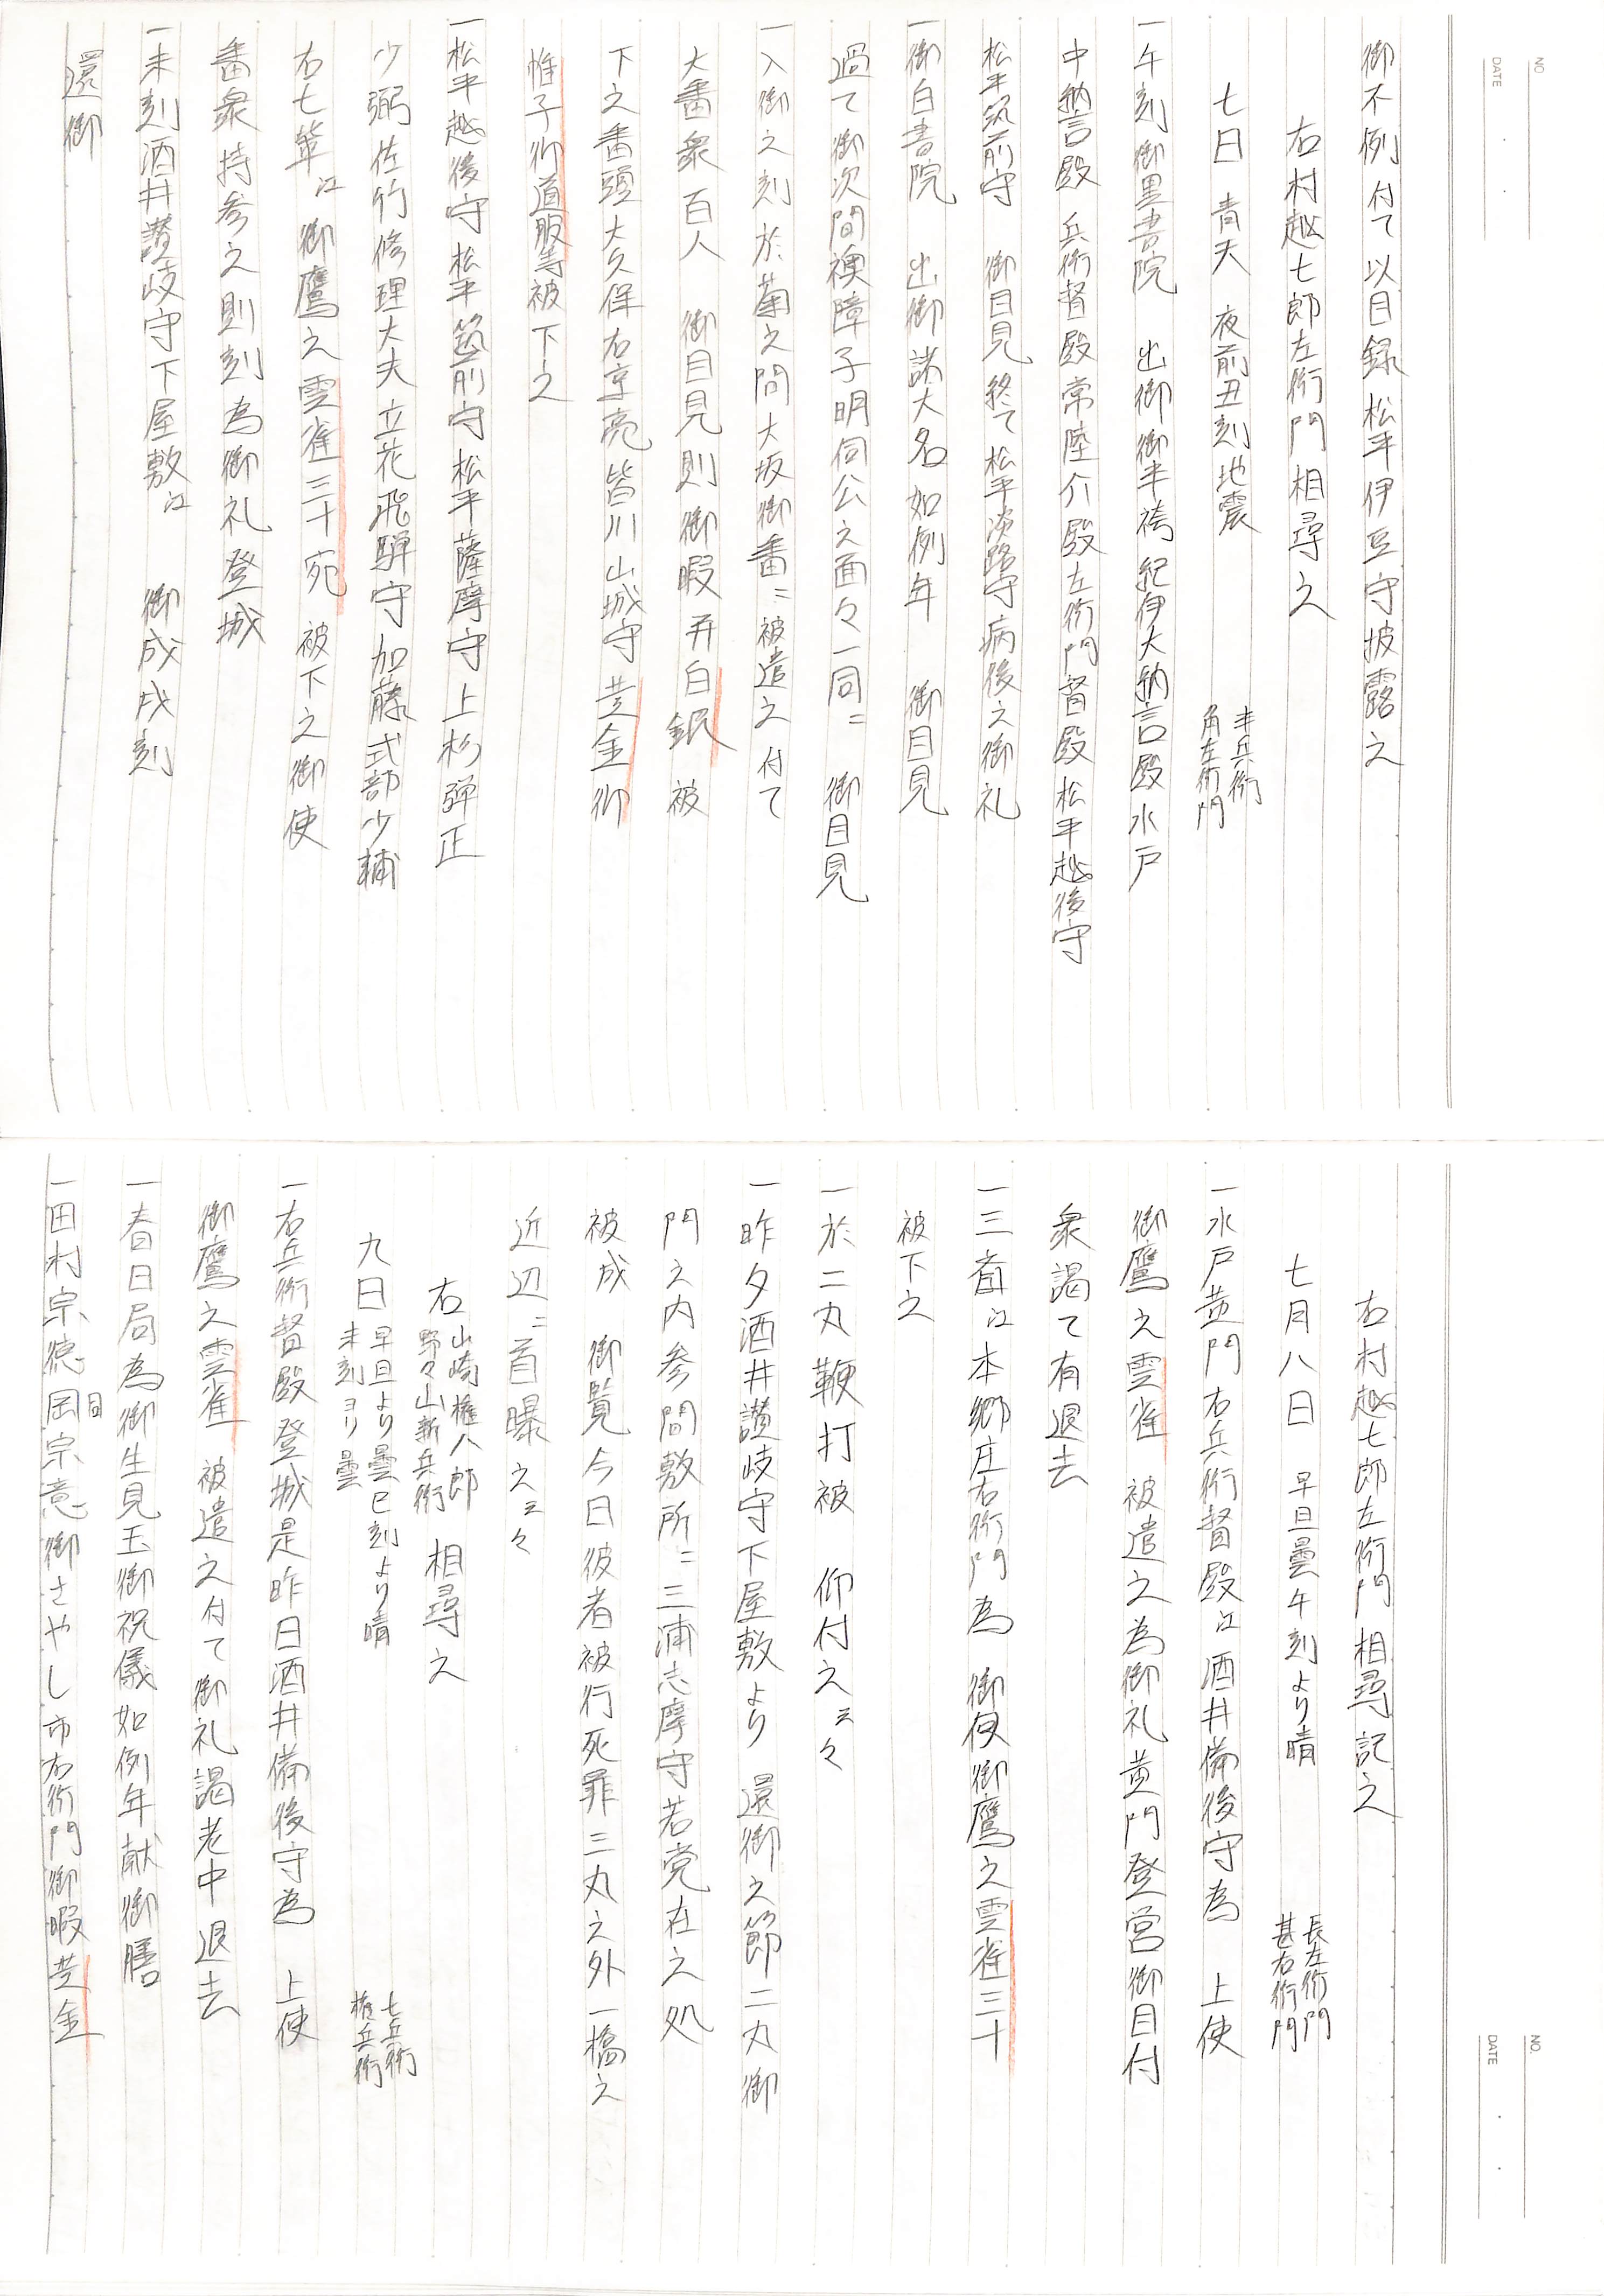 NO.
DATE
御不例付て以目録松平伊豆守披露之
右村越七郎左衛門相尋之
七日 青天 夜前丑刻地震 半兵衛
角左衛門
一午刻御黒書院 出御御半袴紀伊大納言殿水戸
中納言殿兵衛督殿常陸介殿左衛門督殿松平越後守
松平筑前守 御目見終て松平淡路守病後之御礼
一御白書院 出御諸大名如例年 御目見
過て御次間襖障子明伺公之面々一同ニ 御目見
一入御之刻於菊之間大坂御番ニ被遣之付て
大番衆百人 御目見則御暇并白銀被
下之番頭大久保右京亮皆川山城守黄金御
帷子御道服等被下之
一松平越後守松平筑前守松平薩摩守上杉弾正
少弼佐竹修理大夫立花飛騨守加藤式部少輔
右七輩江御鷹之雲雀三十宛被下之御使
番衆持参之則刻為御礼登城
一未刻酒井讃岐守下屋敷江 御成戌刻
還御
NO.
DATE
右村越七郎左衛門相尋記之
七月八日 早旦曇午刻より晴 長左衛門
甚右衛門
一水戸黄門右兵衛督殿江酒井備後守為 上使
御鷹之雲雀 被遣之為御礼黄門登営御目付
衆謁て有退去
一三斎江本郷庄右衛門為 御使御鷹之雲雀三十
被下之
一於二丸鞭打被 仰付之云々
一昨夕酒井讃岐守下屋敷より 還御之節二丸御
門之内参間敷所ニ三浦志摩守若党在之処
被成 御覧今日彼者被行死罪三丸之外一橋之
近辺ニ首曝之云々
右 山崎権八郎
野々山新兵衛 相尋之
九日 早旦より曇巳刻より晴
未刻ヨリ曇 七兵衛
権兵衛
一右兵衛督殿登城是昨日酒井備後守為 上使
御鷹之雲雀 被遣之付て御礼謁老中退去
一春日局為御生見玉御祝儀如例年献御膳
一田村宗徳岡宗意御さやし市右衛門御暇黄金